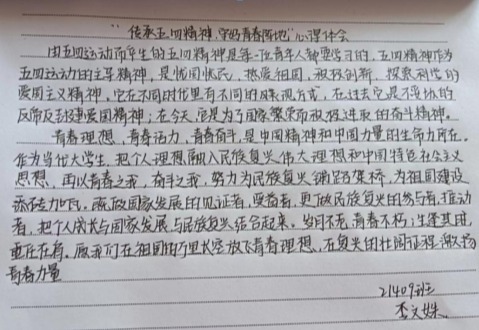 "传承五四精神,学习青春阵地"心理体会
由五四运动而产生的五四精神是每一位青年人都要学习的,五四精神作为
五四运动的主导精神,是忧国忧民,热爱祖国,积极创新,探索科学的
爱国主义精神,它在不同时代里有不同的表现方式,在过去它是不妥协的
反帝反封建爱国精神;在今天,它是为了国家繁荣而积极进取的奋斗精神。
青春理想,青春活力,青春奋斗,是中国精神和中国力量的生命力所在。
作为当代大学生,把个人理想融入民族复兴伟大理想和中国特色社会主义
思想,再以青春之我,奋斗之我,努力为民族复兴铺路架桥,为祖国建设
添砖加瓦,既做国家发展的见证者,受益者,更做民族复兴的参与者,推动
者,把个人成长与国家发展,与民族复兴结合起来。岁月不老,青春不朽;生逢其时,
重任在肩。愿我们在祖国的万里长空放飞青春理想,在复兴的壮阔征程激扬
青春力量
21409班
李文姝